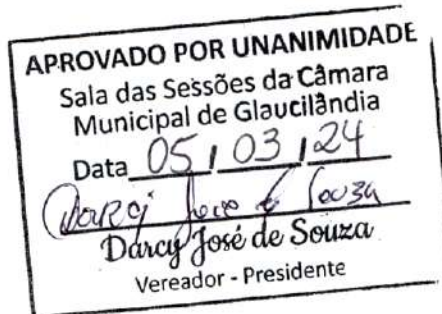 APROVADO POR UNANIMIDADE
Sala das Sessões da Câmara
Municipal de Glaucilândia
Data 05 / 03 / 24
Darcy José de Souza
Darcy José de Souza
Vereador - Presidente